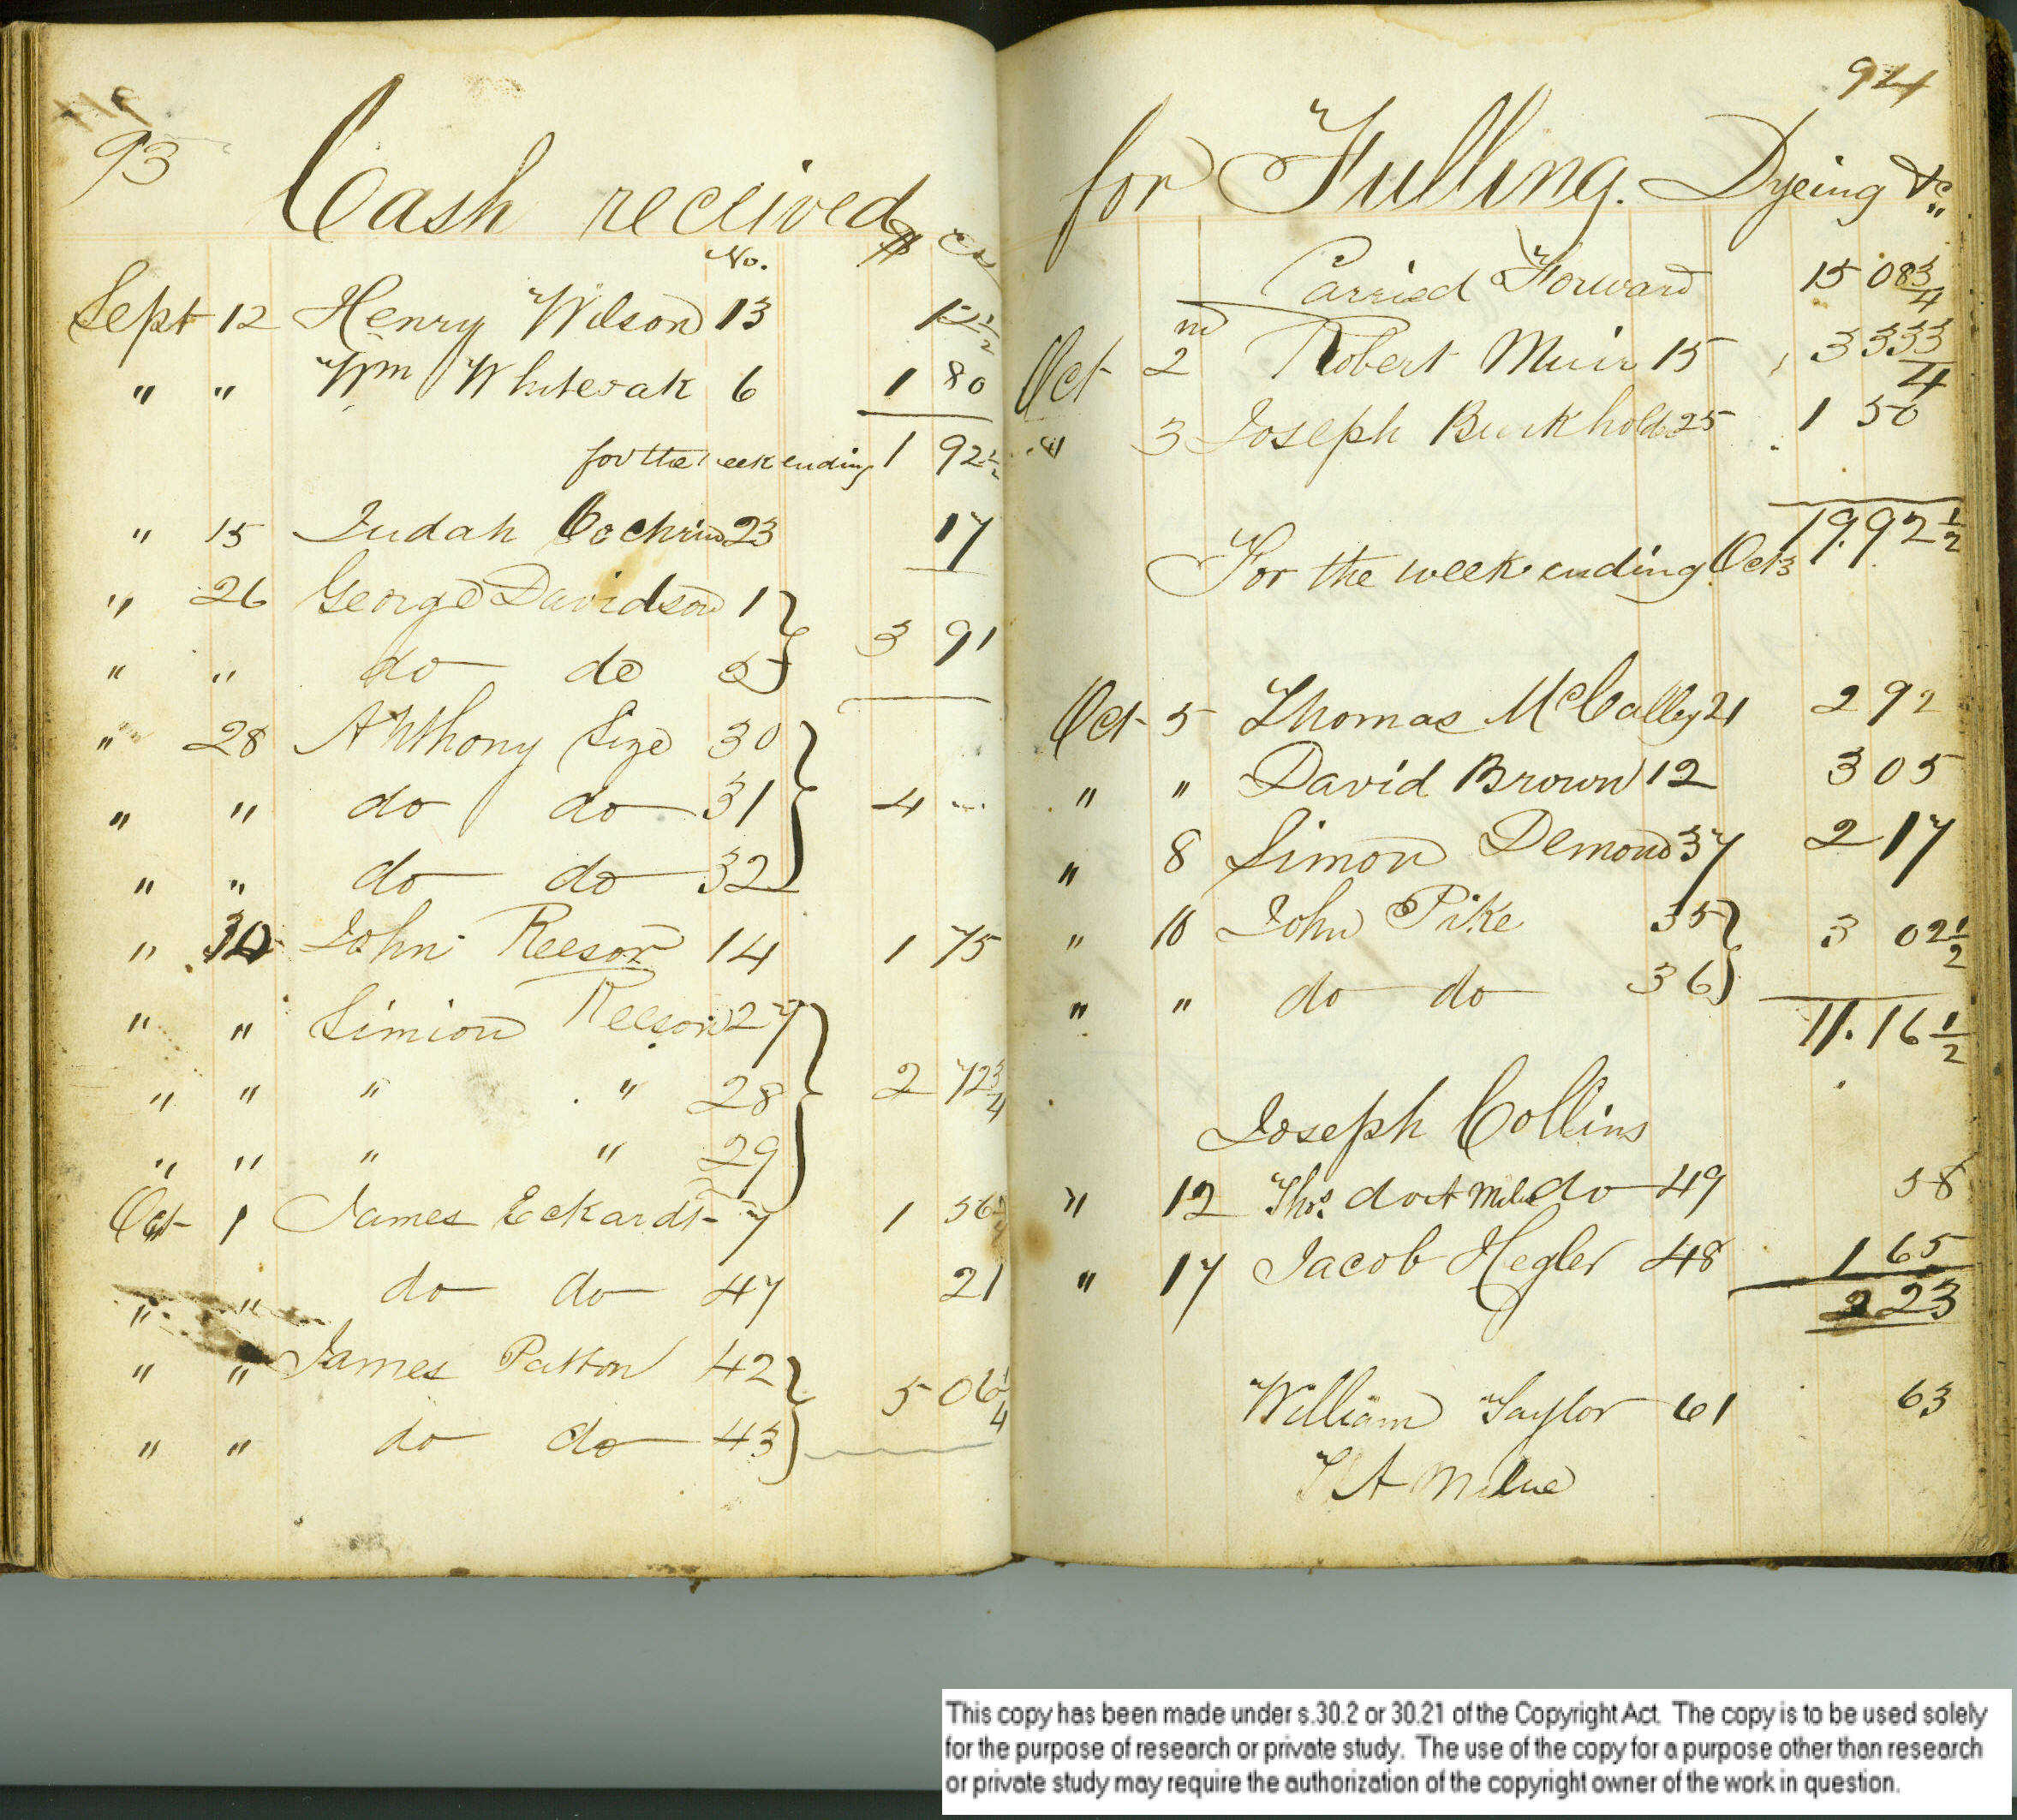 93
Cash received
No. $ cts
Sept 12 Henry Wilson 13 12½
" " Wm Whiteoak 6 1 80
for the week ending 1 92½
" 15 Judah Cochrin 23 17
" 26 George Davidson 1 }
3 91
" " do do 2 }
" 28 Anthony Size 30 }
" " do do 31 } 4 --
" " do do 32 }
" 30 John Reesor 14 1 75
" " Simion Reesor 27 }
" " " " 28 } 2 72¾
" " " " 29 }
Oct 1 James Eckardt 7 1 56
" " do do 47 21
" " James Patton 42 }
5 06¼
" " do do 43 }
94
for Fulling. Dyeing &c
Carried Forward 15 08¾
Oct 2nd Robert Muir 15 3 33¾
" 3 Joseph Burkholder 25 1 50
19.92½
For the week ending Oct 3
Oct 5 Thomas McCalley 21 2 92
" " David Brown 12 3 05
" 8 Simon Demond 37 2 17
" 10 John Pike 35 } 3 02½
" " do do 36 }
11.16½
Joseph Collins
" 12 Thos do A Milne do 49 58
" 17 Jacob Hegler 48 1 65
2 23
William Taylor 61 63
T A Milne
This copy has been made under s.30.2 or 30.21 of the Copyright Act. The copy is to be used solely
for the purpose of research or private study. The use of the copy for a purpose other than research
or private study may require the authorization of the copyright owner of the work in question.